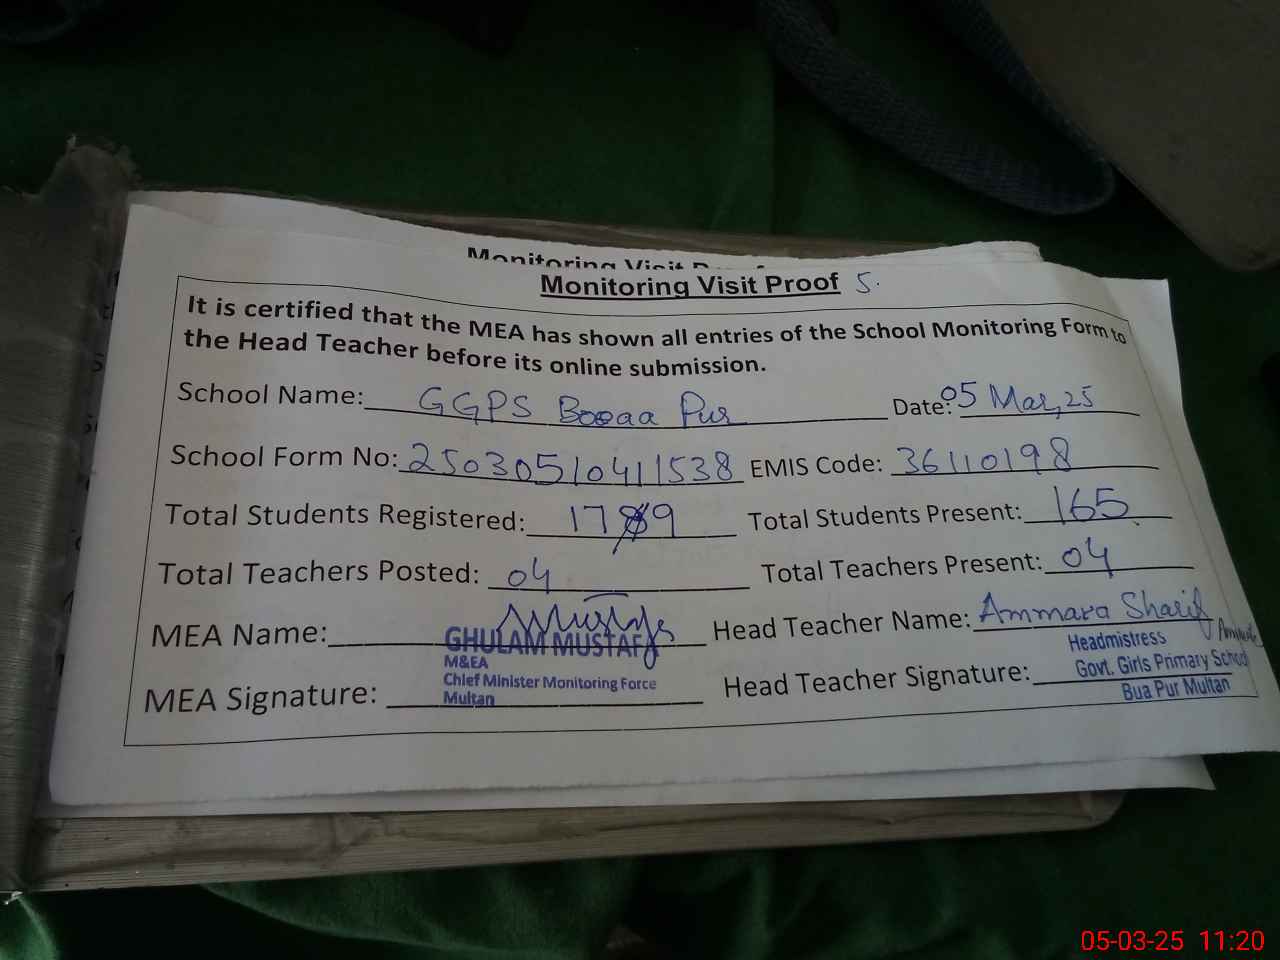 Monitoring Visit Proof
Monitoring Visit Proof 5.
It is certified that the MEA has shown all entries of the School Monitoring Form to
the Head Teacher before its online submission.
School Name: GGPS Booaa Pur Date: 05 Mar, 25
School Form No: 25030510411538 EMIS Code: 36110198
Total Students Registered: 179 Total Students Present: 165
Total Teachers Posted: 04 Total Teachers Present: 04
MEA Name: GHULAM MUSTAFA Head Teacher Name: Ammara Sharif
M&EA
Chief Minister Monitoring Force
Multan
MEA Signature: Head Teacher Signature:
Headmistress
Govt. Girls Primary School
Bua Pur Multan
05-03-25 11:20